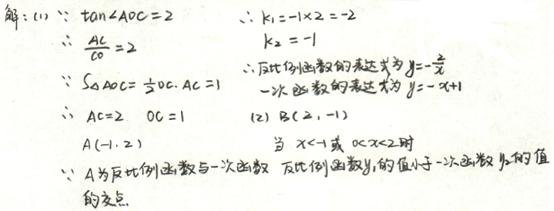 解：(1) ∵ tan∠AOC = 2
∴ AC/CO = 2
∵ S△AOC = 1/2 OC·AC = 1
∴ AC=2 OC=1
A(-1, 2)
∵ A为反比例函数与一次函数
的交点
∴ k₁=-1×2=-2
k₂=-1
∴反比例函数的表达式为 y=-2/x
一次函数的表达式为 y=-x+1
(2) B(2, -1)
当 x<-1 或 0<x<2时
反比例函数y₁的值小于一次函数 y₂的值